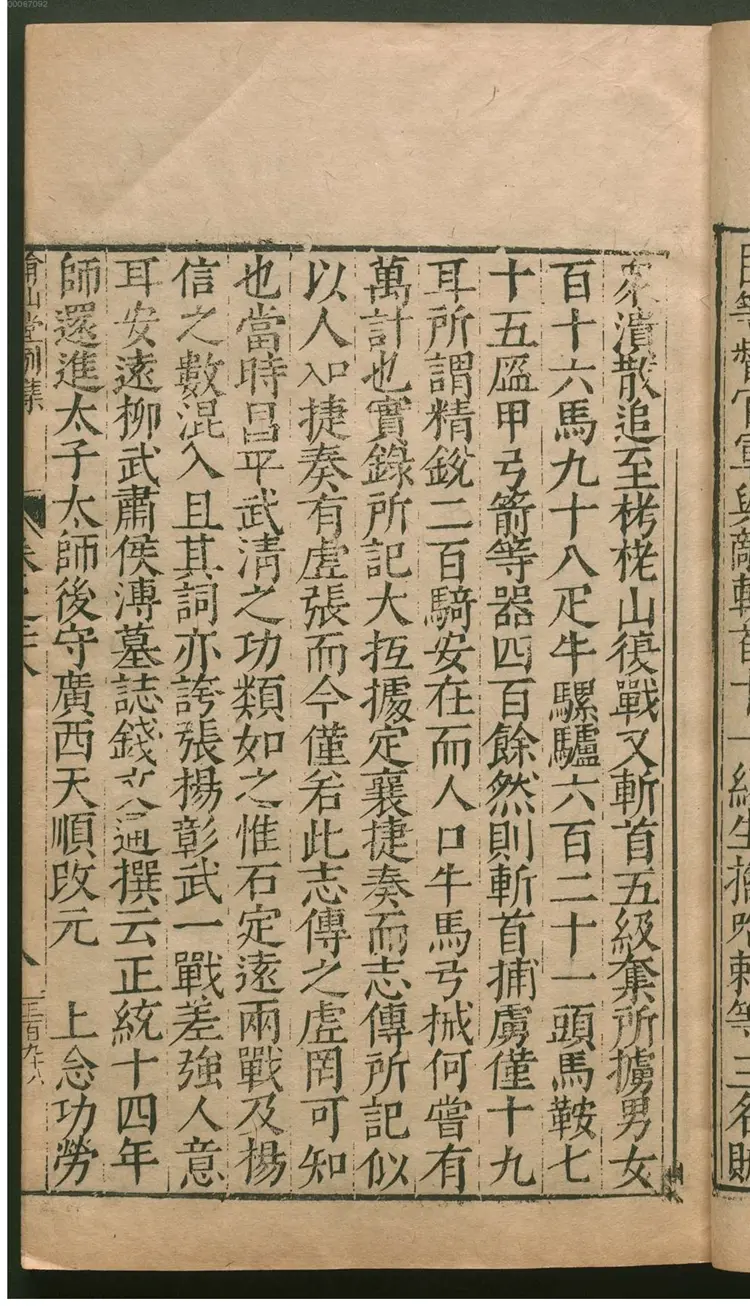 日等督官軍與敵斬首十一級生擒
等三名賊
衆潰散追至栲栳山復戰又斬首五級奪所擄男女
百十六馬九十八疋牛騾驢六百二十一頭馬鞍七
十五盔甲弓箭等器四百餘然則斬首捕虜僅十九
耳所謂精銳二百騎安在而人口牛馬弓械何嘗有
萬計也實錄所記大抵據定襄捷奏而志傳所記似
以人口捷奏有虛張而今僅若此志傳之虛罔可知
也當時昌平武清之功類如之惟石定遠兩戰及揚
信之數混入且其詞亦誇張揚彰武一戰差強人意
耳安遠柳武肅侯溥墓誌錢文通撰云正統十四年
師還進太子太師後守廣西天順改元　上念功勞
弇山堂別集
八
00067092